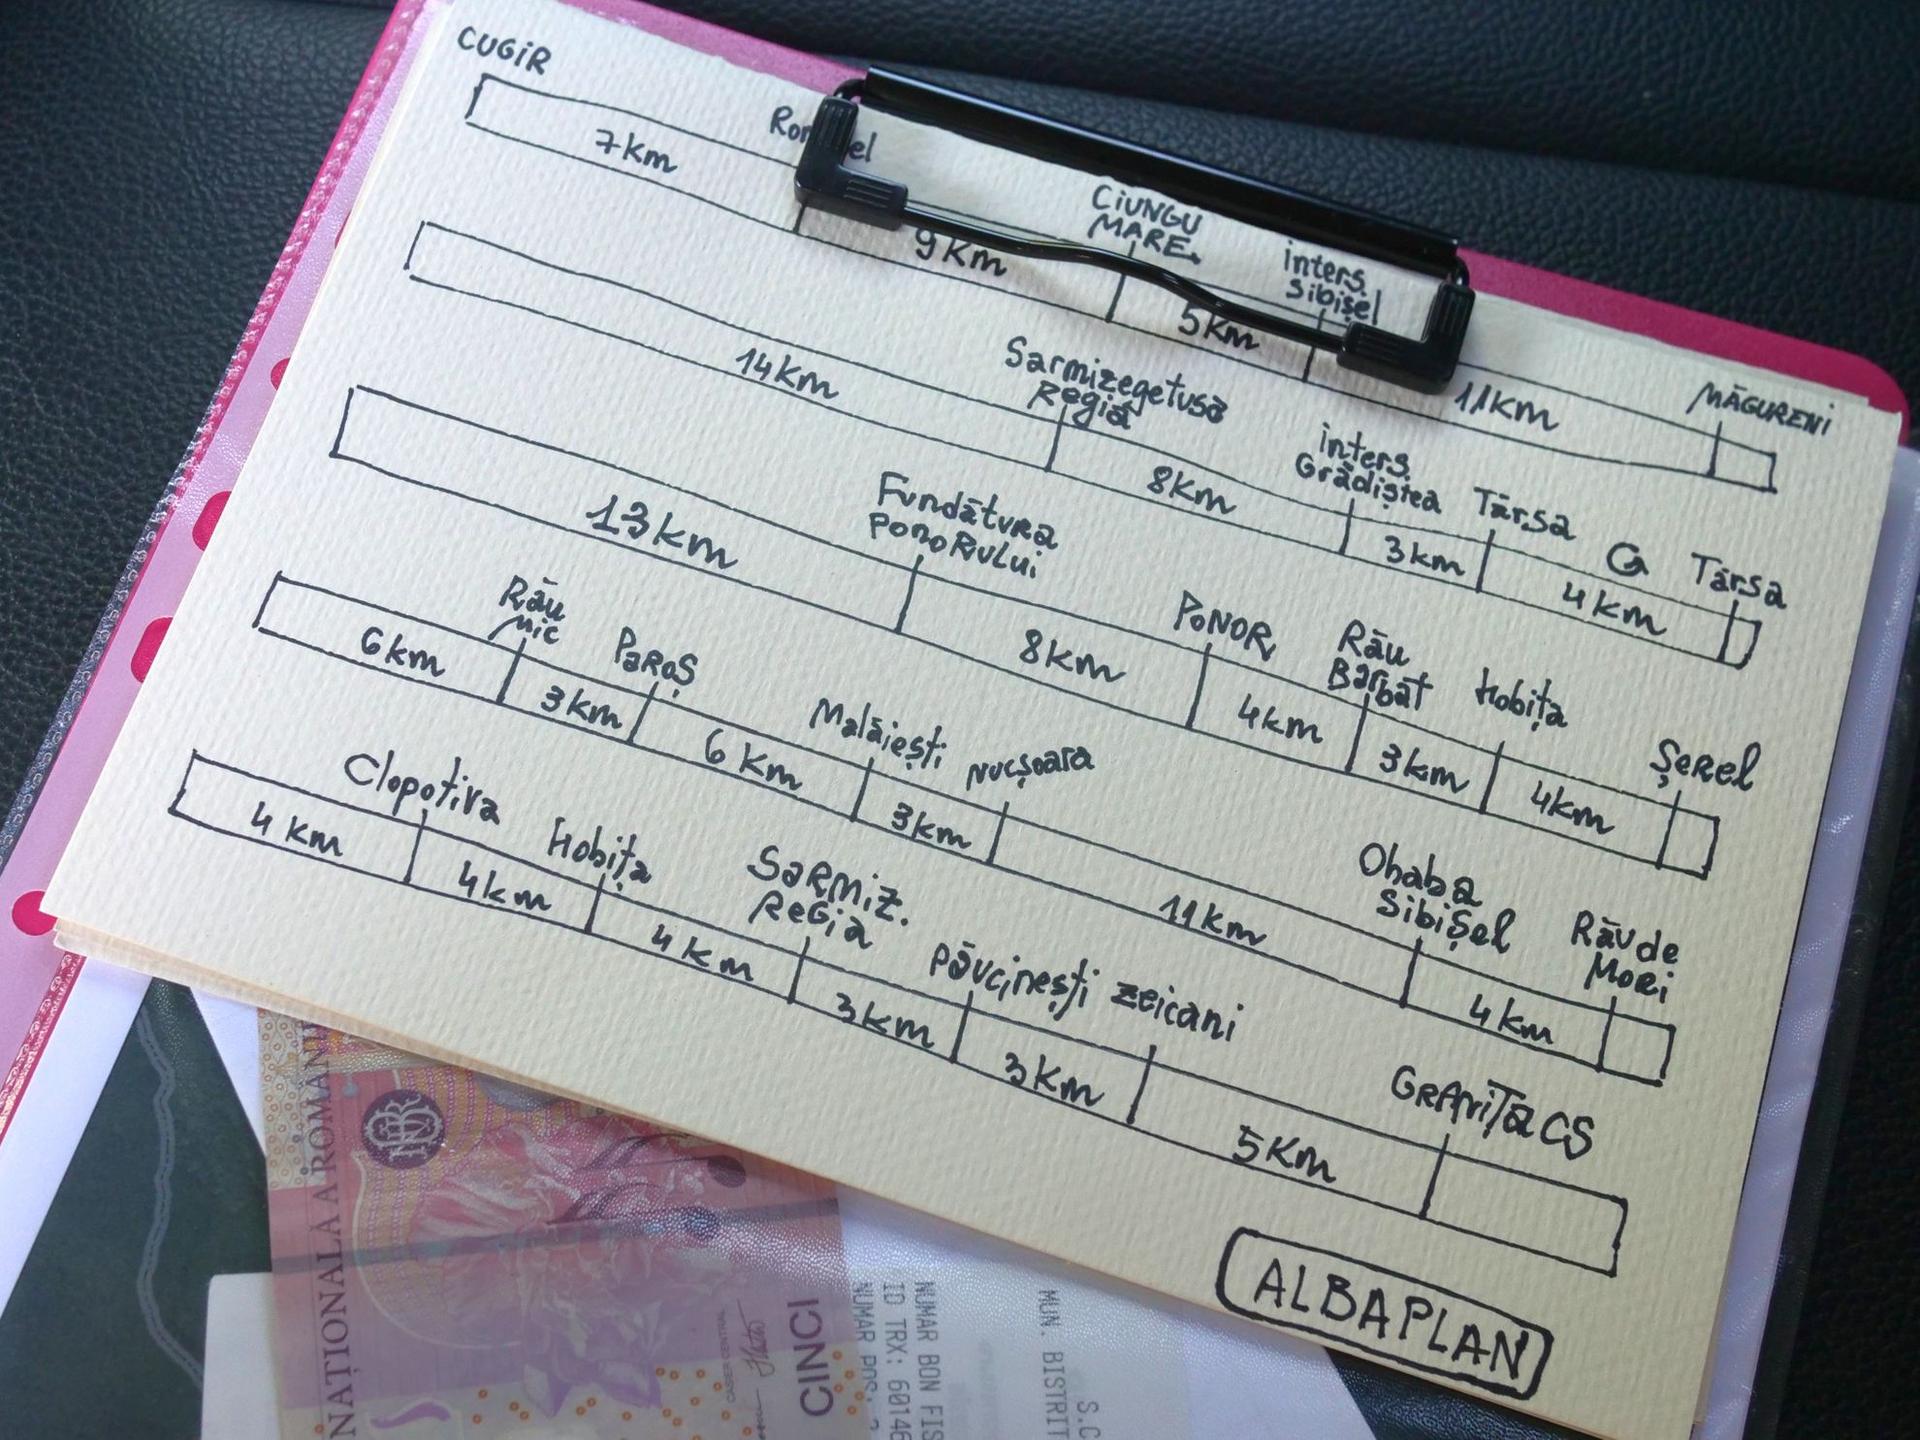 CUGIR
7km
9km
CIUNGU
MARE.
5km
inters.
Sibișel
11km
MĂGURENI
14km
Sarmizegetusa
Regia
8km
inters.
Grădiștea
3km
Târsa
4km
Târsa
13km
Fundătura
PonoRului
8km
PONOR
4km
Râu
Bărbat
3km
Hobița
4km
Șerel
6km
Râu
Mic
3km
Paroș
6 km
Mălăiești
3km
Nucșoara
11km
Ohaba
Sibișel
4km
Râu de
Mori
4 km
Clopotiva
4km
Hobița
4km
SaRmiz.
ReGia
3km
Păucinești
3km
zeicani
5km
GRANIȚA CS
ALBAPLAN
NAȚIONALĂ A ROMÂNIEI
BNR
CASIER CENTRAL
CINCI
NUMAR BON FIS
ID TRX: 60146
NUMAR POS:
MUN. BISTRIT
S.C